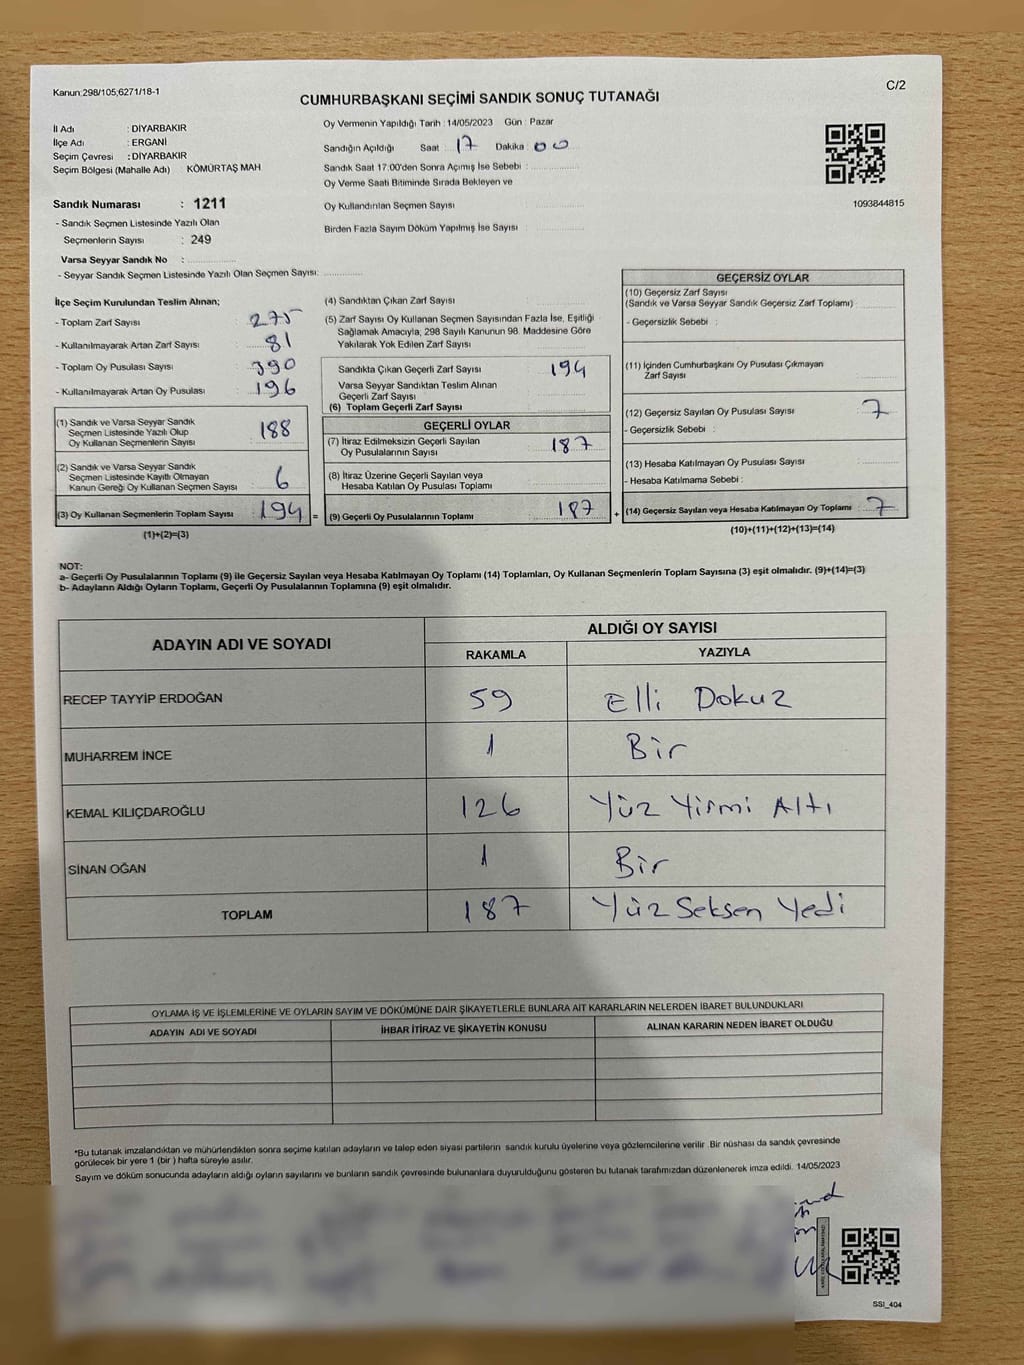 Kanun:298/105;6271/18-1
C/2
CUMHURBAŞKANI SEÇİMİ SANDIK SONUÇ TUTANAĞI
İl Adı : DİYARBAKIR
İlçe Adı : ERGANİ
Seçim Çevresi : DİYARBAKIR
Seçim Bölgesi (Mahalle Adı) KÖMÜRTAŞ MAH
Sandık Numarası : 1211
- Sandık Seçmen Listesinde Yazılı Olan
Seçmenlerin Sayısı : 249
Varsa Seyyar Sandık No :
- Seyyar Sandık Seçmen Listesinde Yazılı Olan Seçmen Sayısı:
Oy Vermenin Yapıldığı Tarih : 14/05/2023 Gün : Pazar
Sandığın Açıldığı Saat : 17 Dakika : 00
Sandık Saat 17:00'den Sonra Açımış İse Sebebi :
Oy Verme Saati Bitiminde Sırada Bekleyen ve
Oy Kullandırılan Seçmen Sayısı :
Birden Fazla Sayım Döküm Yapılmış İse Sayısı :
1093844815
İlçe Seçim Kurulundan Teslim Alınan;
- Toplam Zarf Sayısı : 275
- Kullanılmayarak Artan Zarf Sayısı : 81
- Toplam Oy Pusulası Sayısı : 390
- Kullanılmayarak Artan Oy Pusulası : 196
(1) Sandık ve Varsa Seyyar Sandık
Seçmen Listesinde Yazılı Olup
Oy Kullanan Seçmenlerin Sayısı : 188
(2) Sandık ve Varsa Seyyar Sandık
Seçmen Listesinde Kayıtlı Olmayan
Kanun Gereği Oy Kullanan Seçmen Sayısı : 6
(3) Oy Kullanan Seçmenlerin Toplam Sayısı : 194
(1)+(2)=(3)
(4) Sandıktan Çıkan Zarf Sayısı :
(5) Zarf Sayısı Oy Kullanan Seçmen Sayısından Fazla İse, Eşitliği
Sağlamak Amacıyla, 298 Sayılı Kanunun 98. Maddesine Göre
Yakılarak Yok Edilen Zarf Sayısı :
Sandıkta Çıkan Geçerli Zarf Sayısı : 194
Varsa Seyyar Sandıktan Teslim Alınan
Geçerli Zarf Sayısı
(6) Toplam Geçerli Zarf Sayısı :
GEÇERLİ OYLAR
(7) İtiraz Edilmeksizin Geçerli Sayılan
Oy Pusulalarının Sayısı : 187
(8) İtiraz Üzerine Geçerli Sayılan veya
Hesaba Katılan Oy Pusulası Toplamı :
= (9) Geçerli Oy Pusulalarının Toplamı : 187
GEÇERSİZ OYLAR
(10) Geçersiz Zarf Sayısı
(Sandık ve Varsa Seyyar Sandık Geçersiz Zarf Toplamı)
- Geçersizlik Sebebi :
(11) İçinden Cumhurbaşkanı Oy Pusulası Çıkmayan
Zarf Sayısı :
(12) Geçersiz Sayılan Oy Pusulası Sayısı : 7
- Geçersizlik Sebebi :
(13) Hesaba Katılmayan Oy Pusulası Sayısı :
- Hesaba Katılmama Sebebi :
+ (14) Geçersiz Sayılan veya Hesaba Katılmayan Oy Toplamı : 7
(10)+(11)+(12)+(13)=(14)
NOT:
a- Geçerli Oy Pusulalarının Toplamı (9) ile Geçersiz Sayılan veya Hesaba Katılmayan Oy Toplamı (14) Toplamları, Oy Kullanan Seçmenlerin Toplam Sayısına (3) eşit olmalıdır. (9)+(14)=(3)
b- Adayların Aldığı Oyların Toplamı, Geçerli Oy Pusulalarının Toplamına (9) eşit olmalıdır.
ADAYIN ADI VE SOYADI
ALDIĞI OY SAYISI
RAKAMLA YAZIYLA
RECEP TAYYİP ERDOĞAN 59 Elli Dokuz
MUHARREM İNCE 1 Bir
KEMAL KILIÇDAROĞLU 126 Yüz Yirmi Altı
SİNAN OĞAN 1 Bir
TOPLAM 187 Yüz Seksen Yedi
OYLAMA İŞ VE İŞLEMLERİNE VE OYLARIN SAYIM VE DÖKÜMÜNE DAİR ŞİKAYETLERLE BUNLARA AİT KARARLARIN NELERDEN İBARET BULUNDUKLARI
ADAYIN ADI VE SOYADI İHBAR İTİRAZ VE ŞİKAYETİN KONUSU ALINAN KARARIN NEDEN İBARET OLDUĞU
*Bu tutanak imzalandıktan ve mühürlendikten sonra seçime katılan adayların ve talep eden siyasi partilerin sandık kurulu üyelerine veya gözlemcilerine verilir .Bir nüshası da sandık çevresinde
görülecek bir yere 1 (bir ) hafta süreyle asılır.
Sayım ve döküm sonucunda adayların aldığı oyların sayılarını ve bunların sandık çevresinde bulunanlara duyurulduğunu gösteren bu tutanak tarafımızdan düzenlenerek imza edildi. 14/05/2023
SSI_404